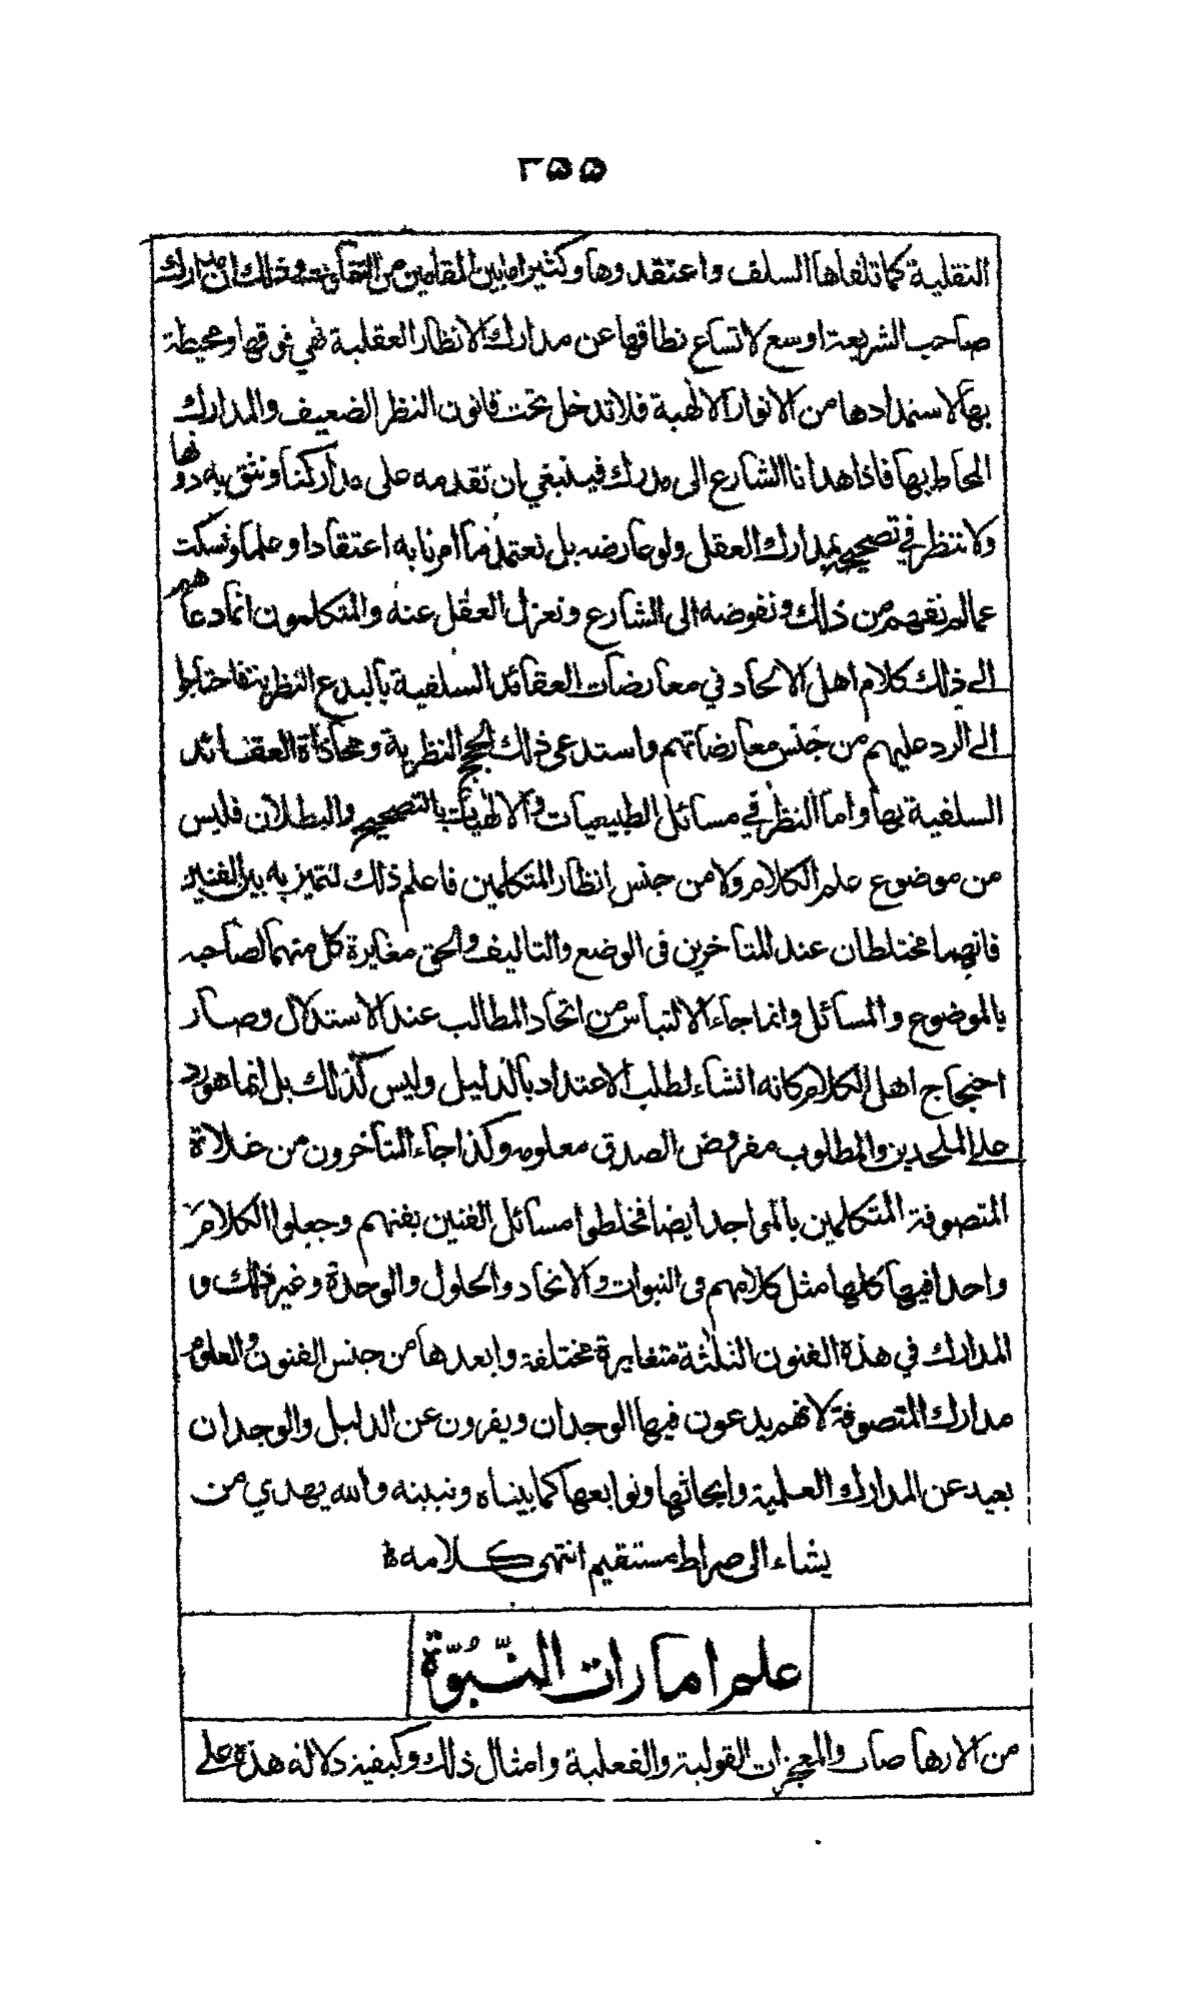 ٢٥٥
النقلية كما تلقاها السلف واعتقدوها وكثير ما بين المقامين من التفاوت وذلك ان مدارك
صاحب الشريعة اوسع لاتساع نطاقها عن مدارك الانظار العقلية فهي فوقها ومحيطة
بها لاستمدادها من الانوار الالهية فلا تدخل تحت قانون النظر الضعيف والمدارك
المحاط بها فاذا هدانا الشارع الى مدرك فينبغي ان نقدمه على مداركنا ونثق به دونها
ولا ننظر في تصحيحه بمدارك العقل ولو عارضه بل نعتمد ما امرنا به اعتقادا وعلما ونسكت
عما لم نفهم من ذلك ونفوضه الى الشارع ونعزل العقل عنه والمتكلمون انما دعاهم
الى ذلك كلام اهل الالحاد في معارضات العقائد السلفية بالبدع النظرية فاحتاجوا
الى الرد عليهم من جنس معارضاتهم واستدعى ذلك الحجج النظرية ومحاذاة العقائد
السلفية بها واما النظر في مسائل الطبيعيات والالهيات بالتصحيح والبطلان فليس
من موضوع علم الكلام ولا من جنس انظار المتكلمين فاعلم ذلك لتميز به بين الفنين
فانهما مختلطان عند المتاخرين فى الوضع والتاليف والحق مغايرة كل منهما لصاحبه
بالموضوع والمسائل وانما جاء الالتباس من اتحاد المطالب عند الاستدلال وصار
احتجاج اهل الكلام كانه انشاء لطلب الاعتداد بالدليل وليس كذلك بل انما هو رد
على الملحدين والمطلوب مفروض الصدق معلومه وكذا جاء المتأخرون من غلاة
المتصوفة المتكلمين بالمواجد ايضا فخلطوا مسائل الفنين بفنهم وجعلوا الكلام
واحدا فيها كلها مثل كلامهم فى النبوات والاتحاد والحلول والوحدة وغير ذلك و
المدارك في هذه الفنون الثلثة متغايرة مختلفة وابعدها من جنس الفنون والعلوم
مدارك المتصوفة لانهم يدعون فيها الوجدان ويفرون عن الدليل والوجدان
بعيد عن المدارك العلمية وابحاثها وتوابعها كما بيناه ونبينه والله يهدي من
يشاء الى صراط مستقيم انتهى كلامه ط
علم امارات النّبُوّة
من الارهاصات والمعجزات القولية والفعلية وامثال ذلك وكيفية دلالة هذه على